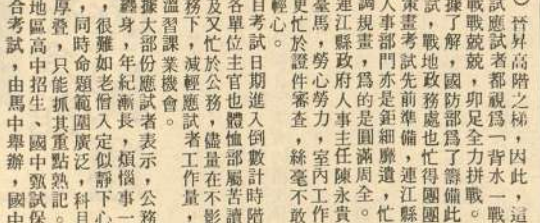 ）晉昇高階之梯，因此，這
試應試者都視爲「背水一戰
戰戰兢兢，卯足全力拼戰。
據了解，國防部爲了籌備此
試，戰地政務處也忙得團團
策畫考試先前準備，連江縣
人事部門亦是鉅細靡遺，忙
調規畫，爲的是圓滿周全。
連江縣政府人事主任陳永貴
臺馬，勞心勞力，室內工作
更忙於證件審查，絲毫不敢
輕心。
目考試日期進入倒數計時階
各單位主官也體恤部屬苦讀
及又忙於公務，儘量在不影
務下，減輕應試者工作量，
溫習課業機會。
據大部份應試者表示，公務
纏身，年紀漸長，煩惱事一
，很難如老僧入定似靜下心
，同時命題範圍廣泛，科目
厚疊，只能抓其重點熟記。
地區高中招生、國中甄試保
合考試，由馬中舉辦，國中